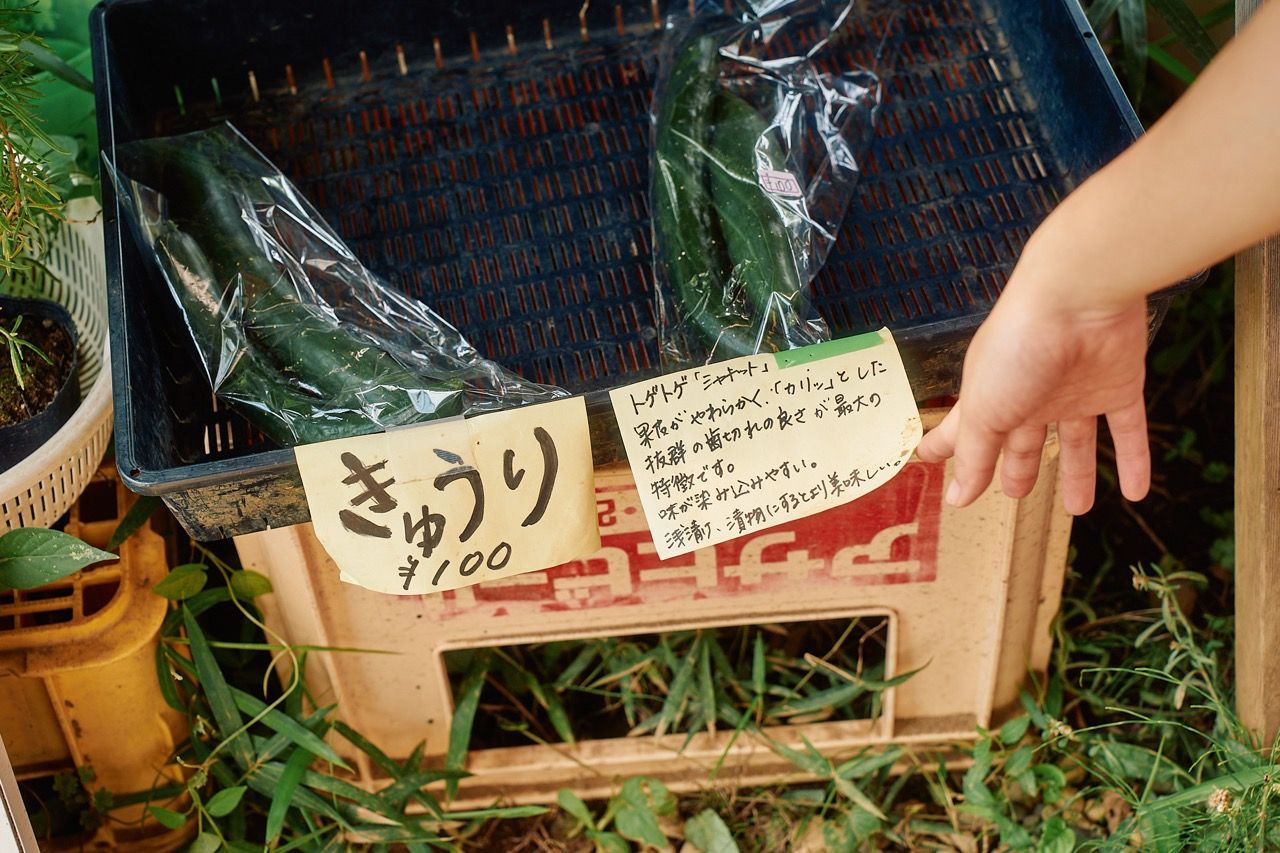 ¥100
トゲトゲ「シャキット」
果皮がやわらかく、「カリッ」とした
抜群の歯切れの良さが最大の
特徴です。
味が染み込みやすい。
浅漬け、漬物にするとより美味しい。
きゅうり
¥100
アサヒビール